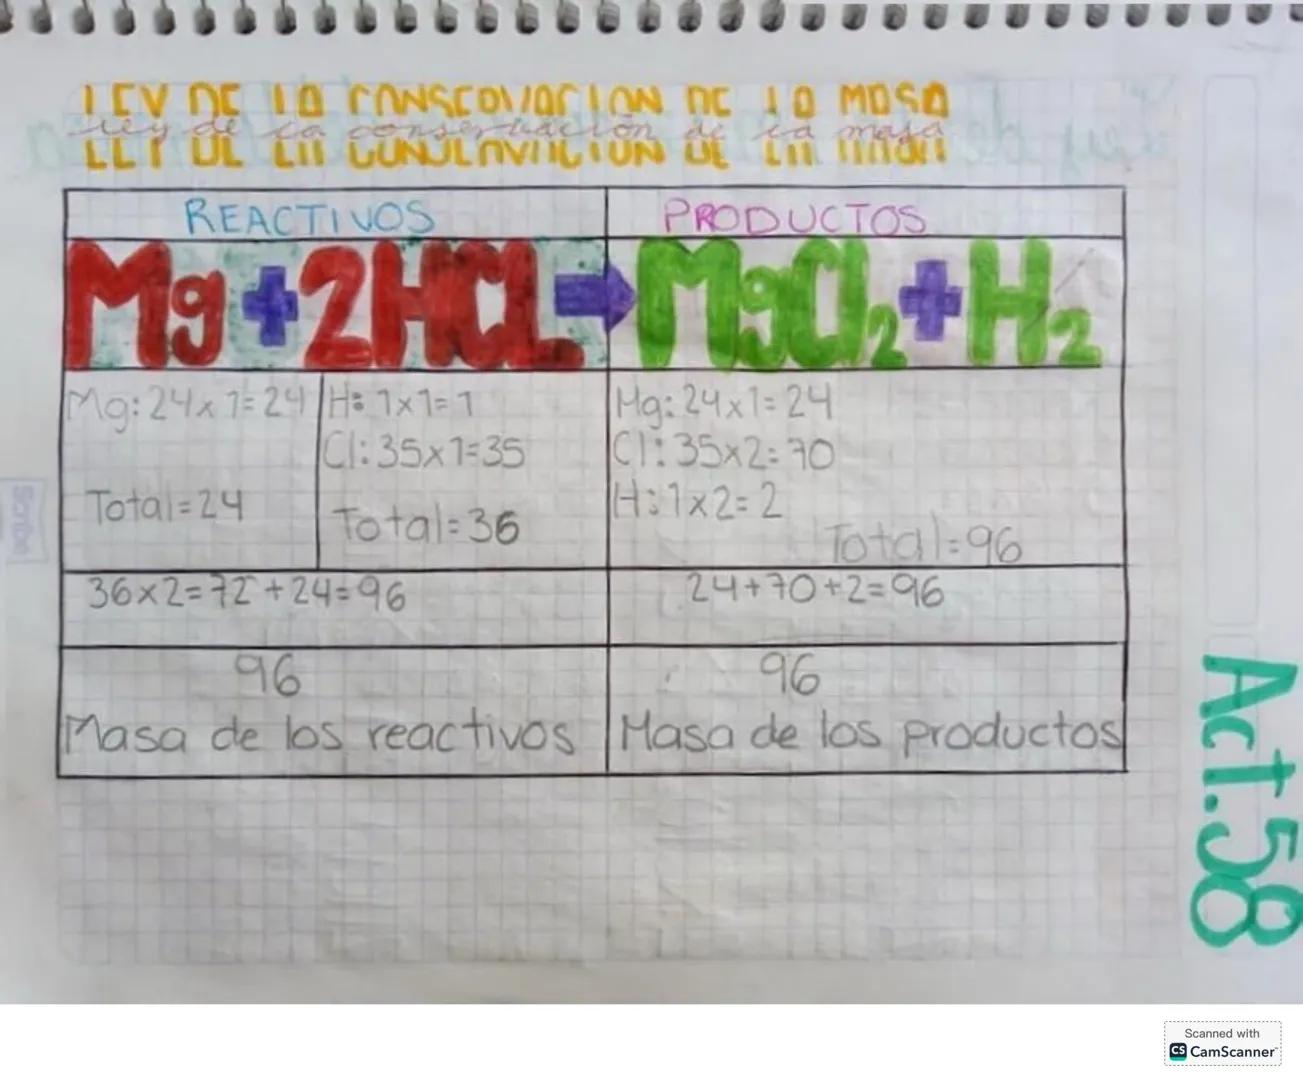 LEY DE LA CONSERVACION DE LA MASA
ley de la conservación de la masa
REACTIVOS
PRODUCTOS
Mg + 2HCL → MgCl₂ + H₂
Mg: 24 x 1 = 24
Total = 24
H: 1x1=1
Cl: 35x1=35
Total = 36
Mg: 24x1= 24
Cl: 35x2= 70
H: 1x2= 2
Total = 96
36x2=72+24=96
24+70+2=96
96
Masa de los reactivos
96
Masa de los productos
Act.58
Scribe
Scanned with
CS CamScanner